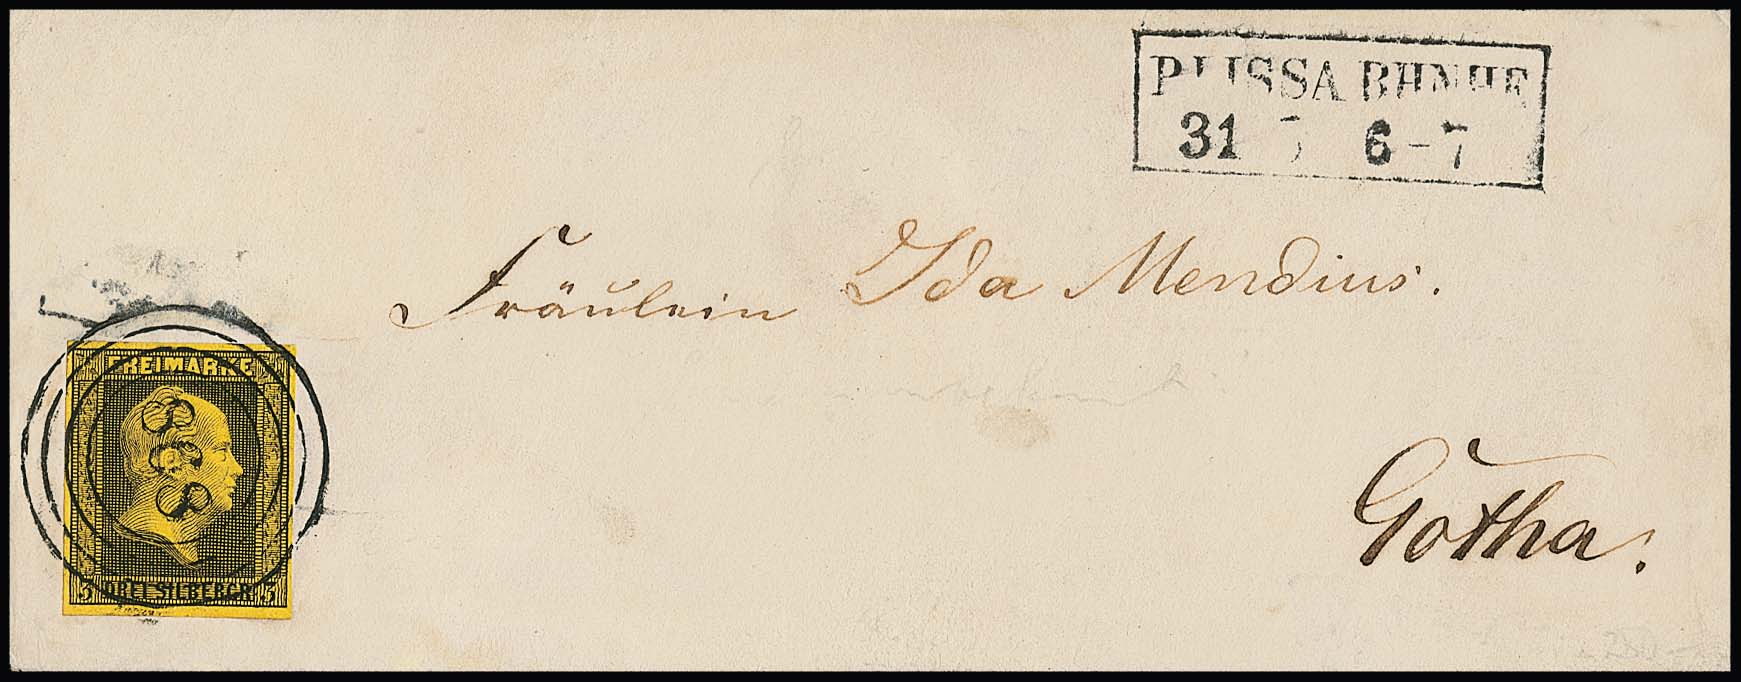 P. LISSA BHNHF
31 6-7
Fräulein Ida Mendius.
FREIMARKE
3 DREI SILBERGR. 3
Gotha.